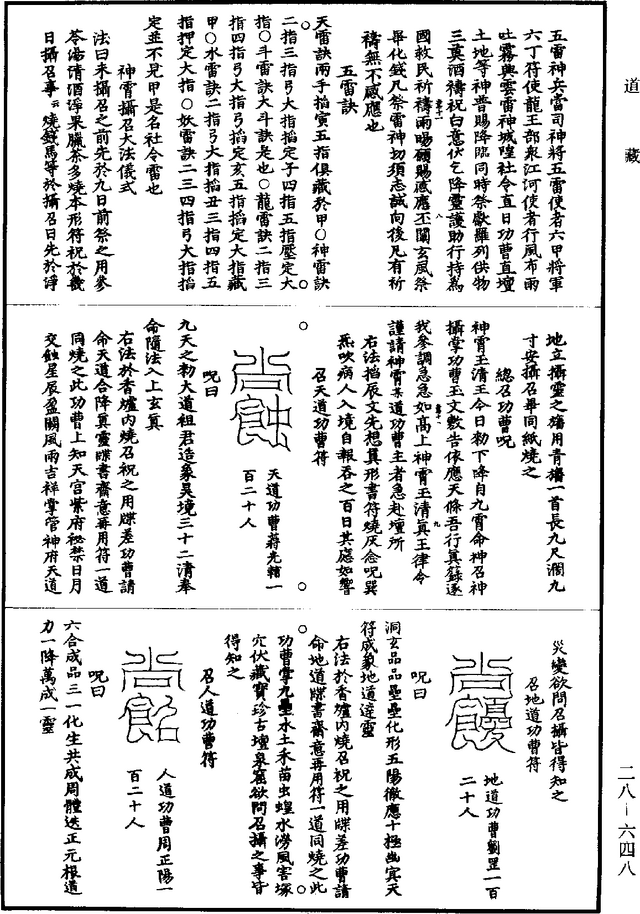 道藏
五雷神兵當司神將五雷使者六甲將軍
六丁符使龍王部衆江河使者行風布雨
吐霧興雲雷神城隍社令直日功曹直壇
土地等神普賜降臨同時祭獻羅列供物
三奠酒禱祝白意伏乞降靈護助行持爲
國救民祈禱雨暘願賜感應丕闡玄風祭
畢化錢凡祭雷神切須志誠向後凡有祈
禱無不感應也
五雷訣
天雷訣兩手掐寅五指俱藏於甲〇神雷訣
二指三指弓大指掐定子四指五指壓定大
指〇斗雷訣大斗訣是也〇龍雷訣二指三
指四指弓大指弓掐定亥五指掐定大指藏
甲〇水雷訣二指弓大指掐丑三指四指五
指押定大指〇妖雷訣二三四指弓大指掐
定並不見甲是名社令雷也
神霄攝召大法儀式
法曰來攝召之前先於九日前祭之用參
苓湯清酒淨果臘茶多燒本形符祝於幾
日攝召事云燒錢馬等於攝召日先於淨
地立攝靈之旛用青旛一首長九尺濶九
寸安攝召畢同紙燒之
總召功曹呪
神霄玉清王今日勑下降自九霄命神召神
攝掌功曹玉文敷告依應天條吾行眞籙逐
我參調急急如高上神霄玉清眞王律令
謹請神霄某道功曹主者急赴壇所
右法掐辰文先想眞形書符燒灰念呪巽
炁吹病人入境自報吞之百日其應如響
召天道功曹符
天道功曹蔣光轄一
百二十人
呪曰
九天之勑大道祖君造象昊境三十二清奉
命隨法入上玄眞
右法於香爐内燒召祝之用牒差功曹請
命天道合降眞靈牒書齋意再用符一道
同燒之此功曹上知天宫紫府祕禁日月
交蝕星辰盈闕風雨吉祥掌管神府天道
災變欲問召攝皆得知之
召地道功曹符
地道功曹劉罡一百
二十人
呪曰
洞玄品品壘壘化形五陽徹應十極幽冥天
符威象地道達靈
右法於香爐内燒召祝之用牒差功曹請
命地道牒書齋意再用符一道同燒之此
功曹掌九壘水土禾苗虫蝗水澇風害塚
穴伏藏寶珍古壇泉窟欲問召攝之事皆
得知之
召人道功曹符
人道功曹周正陽一
百二十人
呪曰
六合成品三一化生共成周體迭正元根道
力一降萬成一靈
二八－六四八